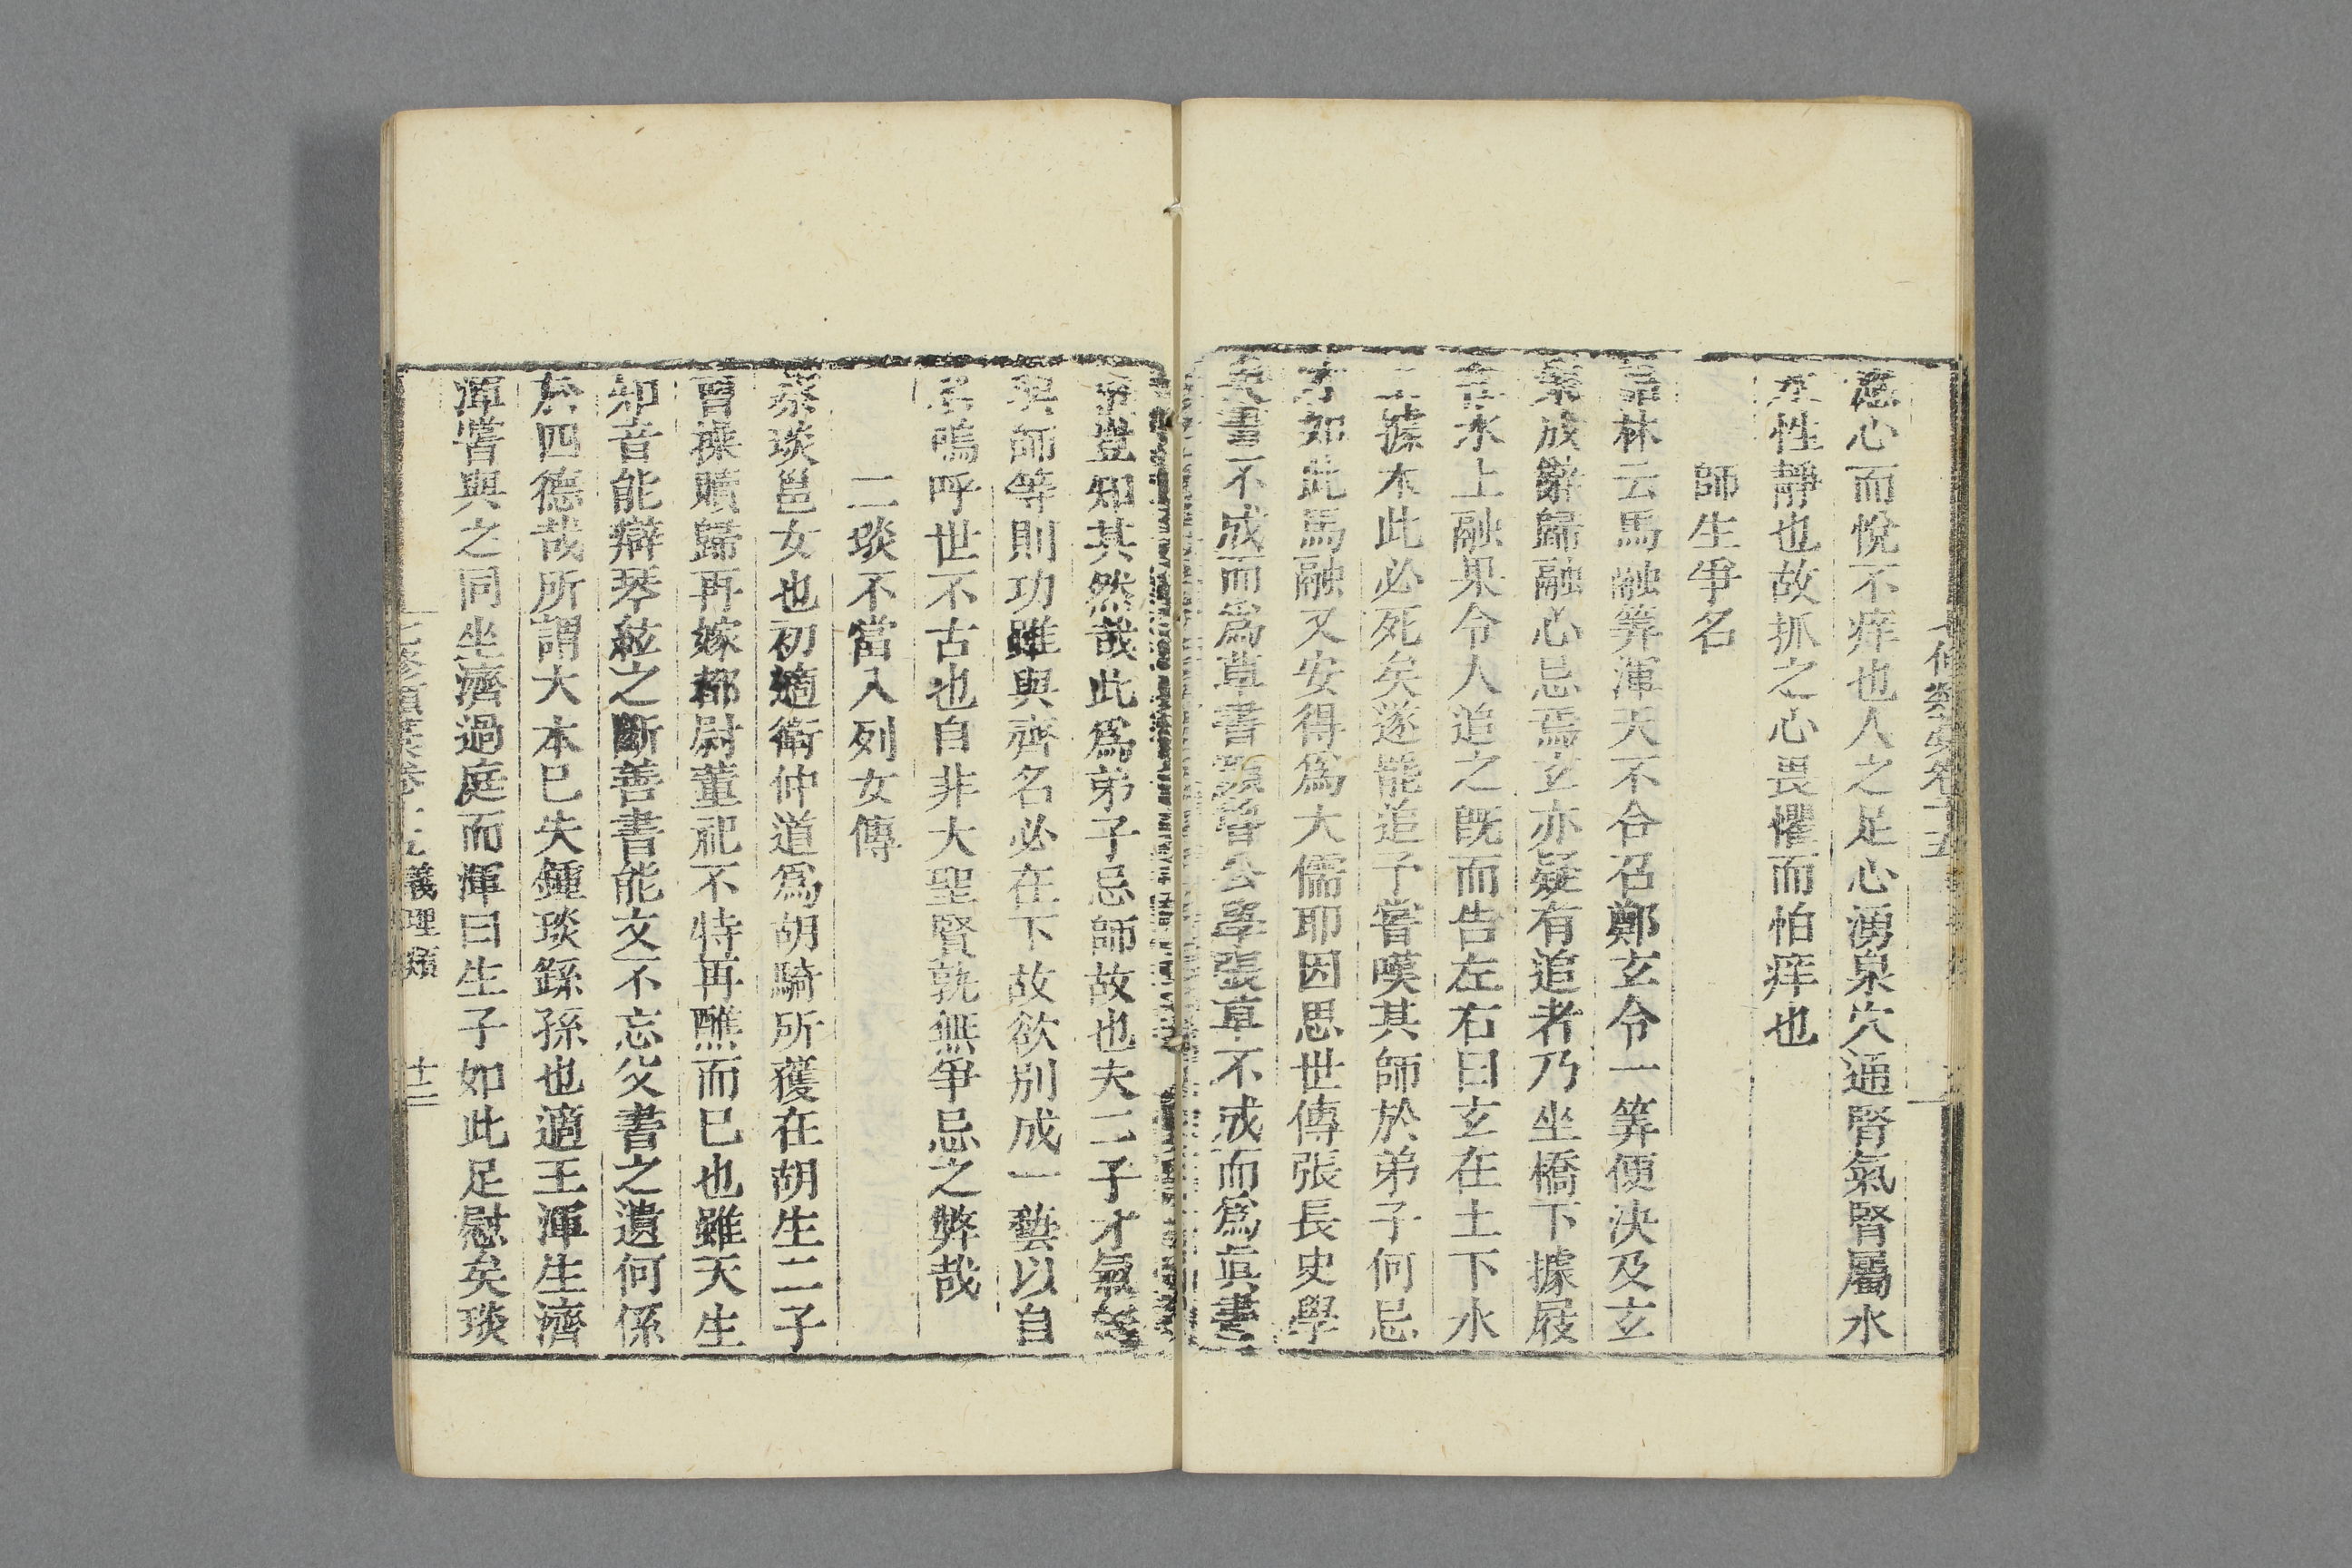 應心而悅不痒也人之足心湧泉穴通腎氣腎屬水
水性靜也故抓之心畏懼而怕痒也
師生爭名
語林云馬融筭渾天不合召鄭玄令一筭便決及玄
業成辭歸融心忌焉玄亦疑有追者乃坐橋下據屐
言水上融果令人追之既而告左右曰玄在土下水
上據木此必死矣遂罷追予嘗嘆其師於弟子何忌
才如此馬融又安得爲大儒耶因思世傳張長史學
吳書不成而爲草書顏魯公學張草不成而爲眞書
豈知其然哉此爲弟子忌師故也夫二子才氣
與師等則功雖與齊名必在下故欲別成一藝以自
名嗚呼世不古也自非大聖賢孰無爭忌之弊哉
二琰不當入列女傳
蔡琰邕女也初適衛仲道爲胡騎所獲在胡生二子
曹操贖歸再嫁都尉董祀不特再醮而已也雖天生
知音能辯琴絃之斷善書能文不忘父書之遺何係
於四德哉所謂大本已失鍾琰繇孫也適王渾生濟
渾嘗與之同坐濟過庭而渾曰生子如此足慰矣琰
七修類藁卷十五義理類
十三